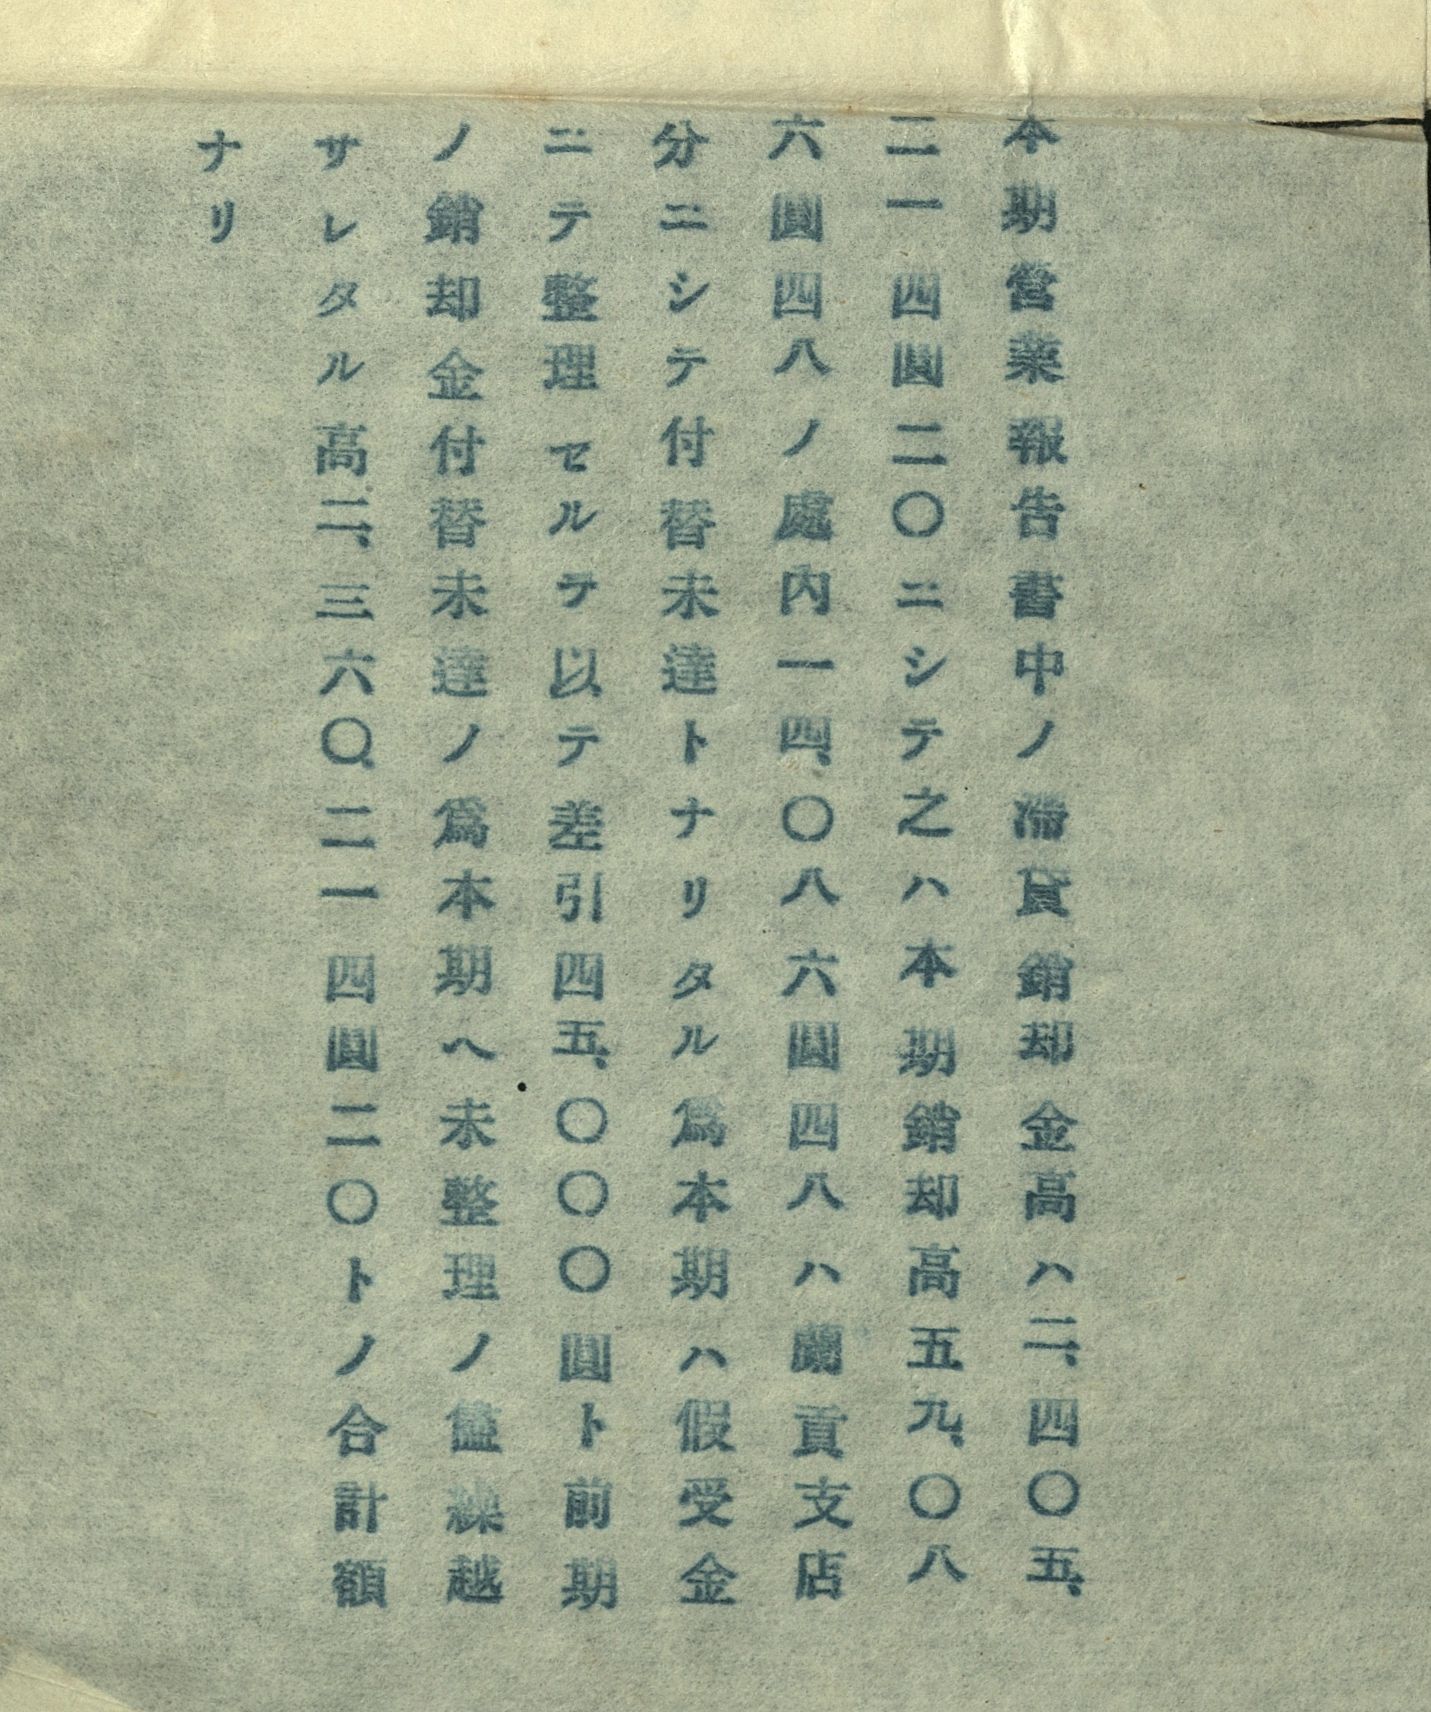 本期營業報告書中ノ滯貸銷却金高ハ二、四〇五、
二一四圓二〇ニシテ之ハ本期銷却高五九、〇八
六圓四八ノ處內一四、〇八六圓四八ハ蘭貢支店
分ニシテ付替未達トナリタル爲本期ハ假受金
ニテ整理セルヲ以テ差引四五、〇〇〇圓ト前期
ノ銷却金付替未達ノ爲本期ヘ未整理ノ儘繰越
サレタル高二、三六〇、二一四圓二〇トノ合計額
ナリ